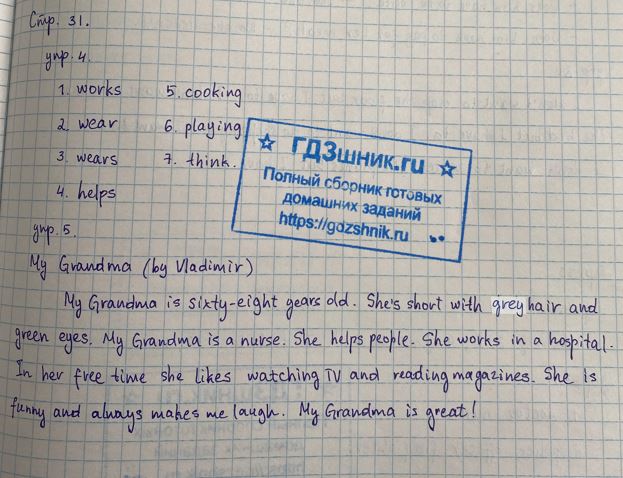 Стр. 31.
упр. 4.
1. works 5. cooking
2. wear 6. playing
3. wears 7. think.
4. helps
☆ ГДЗшник.ru ☆
Полный сборник готовых
домашних заданий
https://gdzshnik.ru
упр. 5.
My Grandma (by Vladimir)
My Grandma is sixty-eight years old. She's short with grey hair and
green eyes. My Grandma is a nurse. She helps people. She works in a hospital.
In her free time she likes watching TV and reading magazines. She is
funny and always makes me laugh. My Grandma is great!